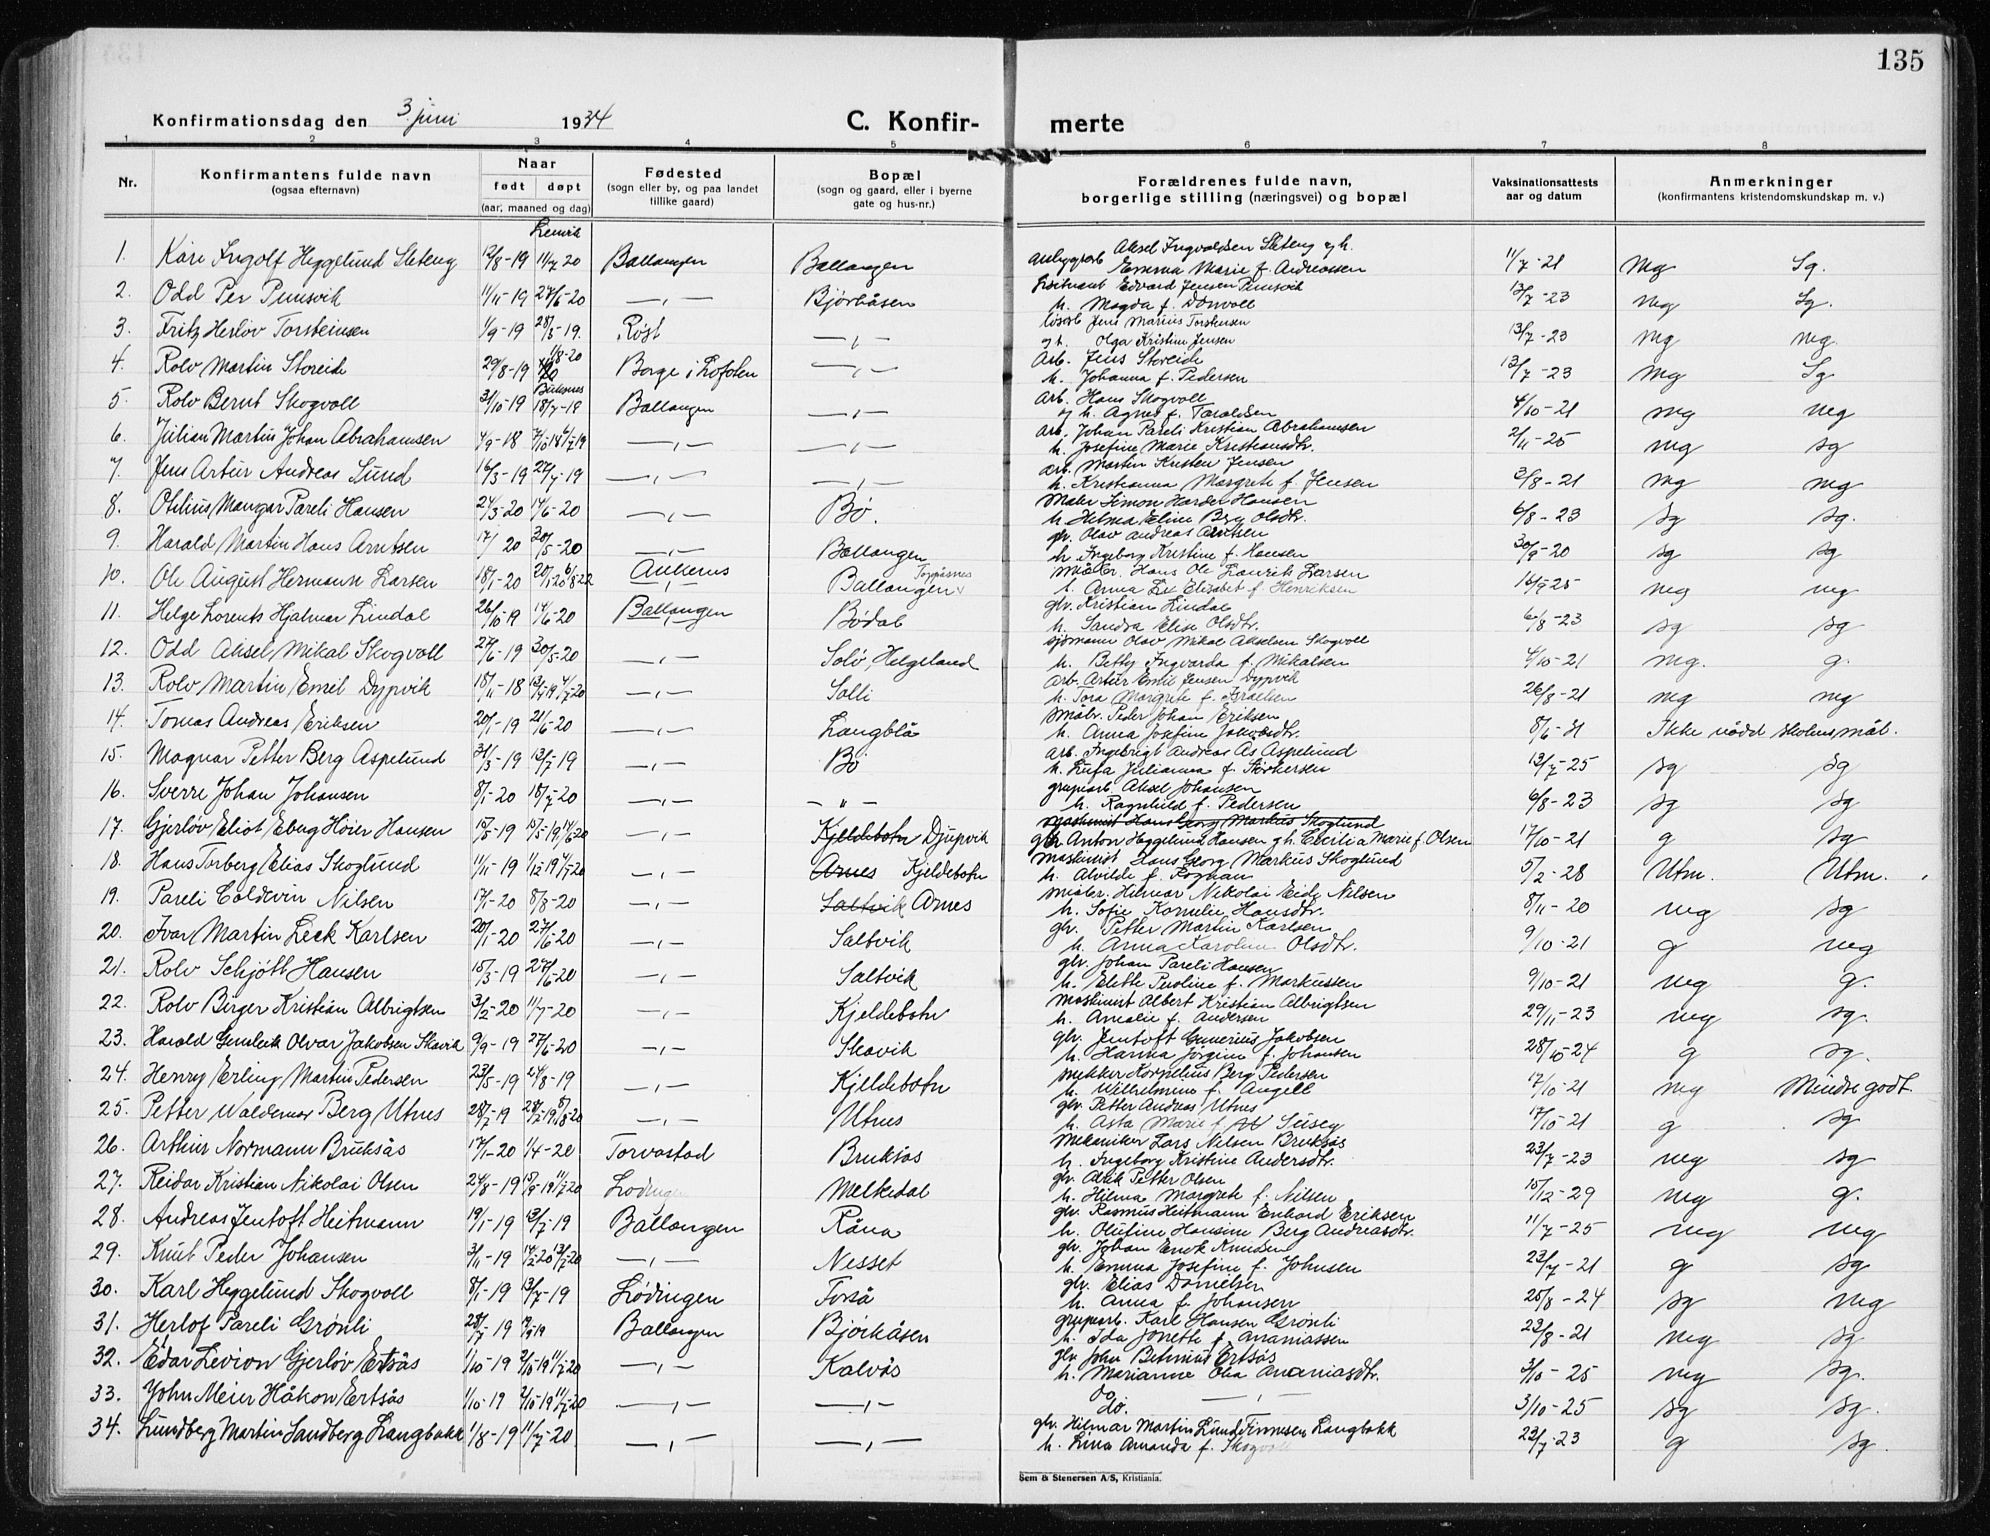 135
Konfirmationsdag den 3 juni 1934
C. Konfir- merte
1 2 3 4 5 6 7 8
Nr.
Konfirmantens fulde navn (ogsaa efternavn)
Naar født døpt (aar, maaned og dag)
Fødested (sogn eller by, og paa landet tillike gaard)
Bopæl (sogn og gaard, eller i byerne gate og hus-nr.)
Forældrenes fulde navn, borgerlige stilling (næringsvei) og bopæl
Vaksinationsattests aar og datum
Anmerkninger (konfirmantens kristendomskundskap m. v.)
1. Kåre Ingolf Heggelund Sleteng 12/8-19 11/7 20 Ballangen Ballangen Aksel Ingvaldsen Sleteng og h. Emma Marie f. Andreassen 11/7-21 mg Sg.
2. Odd Per 11/11-19 27/6-20 —„— Bjørkåsen Edvard Jensen h. Magda f. 13/7-23 mg Sg.
3. Fritz Herlov Torsteinsen 1/9-19 28/5-19. Røst —„— Jens Marius Torsteinsen og h. Olga Kristine Jensen 13/7-23 mg mg.
4. Rolv Martin Storeide 29/8-19 1/8-20 Borge i Lofoten —„— Arb. Jens Storeide h. Johanna f. Pedersen 13/7-23 mg Sg
5. Rolv Bernt Skogvoll 31/10-19 Ballangen —„— Arb. Hans Skogvoll og h. Agnes f. Taraldsen 4/10-21 mg mg
6. Julian Martin Johan Abrahamsen 4/9-18 —„— —„— Arb. Johan Pareli Kristian Abrahamsen h. Josefine Marie Kristiansdtr. 2/11-25 mg sg
7. Jens Artur Andreas Sund 16/3-19 27/7-19 —„— —„— arb. Martin Kristen Jensen h. Kristianna Margrete f. Jensen 3/8-21 mg mg
8. Otilius Mangar Pareli Hansen 24/3-20 14/6-20 —„— Bø. Maler Simon Harder Hansen h. Helma Eline Berg Olsdtr. 6/8-23 sg sg.
9. Harald Martin Hans Arntsen 17/ 20 30/5-20 —„— Ballangen gb. Olav Andreas Arntsen h. Ingeborg Kristine f. Hansen 30/9-20 sg sg
10. Ole August Hermann Larsen 18/1-20 Ankenes Ballangen småbr. Hans Ole Laurik Larsen h. Anna Elisabet f. Henriksen 16/9-25 mg mg
11. Helge Lorents Hjalmar Lindal 26/10-19 14/6-20 Ballangen Bødal gb. Kristian Lindal h. Sandra Elise Olsdtr. 6/8-23 sg sg
12. Odd Aksel Mikal Skogvoll 27/6-19 30/5-20 —„— Solø, Helgeland sjømann Olav Mikal Akselsen Skogvoll h. Betty Ingvarda f. Mikalsen 4/10-21 mg. g.
13. Rolv Martin Emil Dypvik 18/11-18 —„— Salli Arb. Artur Emil Jensen Dypvik h. Tora Margrete f. Israelsen 26/8-21 mg mg
14. Tomas Andreas Eriksen 20/1-19 21/6-20 —„— Langblå Småbr. Peder Johan Eriksen h. Anna Josefine 8/6-31 Ikke nådd skolens mål.
15. Magnar Petter Berg Aspelund 31/3-19 13/7-19 —„— Bø arb. Ingebrigt Andreas As Aspelund h. Lufa Julianna f. Størkersen 13/7-25 sg sg
16. Sverre Johan Johansen 8/1-20 18/7-20 —„— — „ — grubearb. Aksel Johansen h. Ragnhild f. Pedersen 6/8-23 sg sg
maskinist Hans Georg Markus Skoglund
17. Gjerløv Eliot Eberg Høier Hansen 15/5-19 —„— Kjeldebotn Djupvik Anton Heggelund Hansen og h. Cecilia Marie f. Olsen 17/10-21 g sg
18. Hans Torberg Elias Skoglund 11/11-19 —„— Arnes Kjeldebotn maskinist Hans Georg Markus Skoglund h. Alvilde f. Rognan 5/2-28 Utm. Utm.
19. Pareli Coldevin Nilsen 17/1-20 8/8-20 —„— Saltvik Arnes småbr. Hilmar Nikolai Eide Nilsen h. Sofie Kornelie Hansdtr. 8/11-20 mg sg
20. Ivar Martin Leek Karlsen 20/1-20 27/6-20 —„— Saltvik gb. Petter Martin Karlsen h. Anna Karoline Olsdtr. 9/10-21 g mg
21. Rolv Schjøtt Hansen 15/3-19 27/6-20 —„— Saltvik gb. Johan Pareli Hansen h. Elette Paroline f. Markussen 9/10-21 mg g.
22. Rolv Birger Kristian Albrigtsen 3/2-20 11/7-20 —„— Kjeldebotn Maskinist Albert Kristian Albrigtsen h. Amalie f. Andersen 29/11-23 mg sg.
23. Harald Olvar Jakobsen Skavik 9/9-19 27/6-20 —„— Skavik gb. Jentoft Gunerius Jakobsen h. Hanna Jørgine f. Johansen 28/10-24 g sg.
24. Henry Erling Martin Pedersen 23/5-19 24/8-19 —„— Kjeldebotn Kornelius Berg Pedersen h. Wilhelmine f. Angell 17/10-21 mg Mindre godt.
25. Petter Waldemar Berg Utnes 28/7-19 —„— Utnes gb. Petter Andreas Utnes h. Asta Marie f. 17/10-21 g sg
26. Arthur Normann Bruksås 17/1-20 1/4-20 Torvastad Bruksås Mekaniker Lars Nilsen Bruksås h. Ingeborg Kristine Andersdtr. 23/7-23 mg sg
27. Reidar Kristian Nikolai Olsen 24/8-19 Lødingen Melkedal gb. Petter Olsen h. Hilma Margrete f. Nilsen 15/12-29 mg g.
28. Andreas Jentoft Heitmann 19/1-19 13/7-19 Ballangen Råna gb. Rasmus Heitmann Enhard Eriksen h. Olufine Hansine Berg Andreasdtr. 11/7-25 mg mg
29. Knut Peder Johansen 3/1-19 —„— Nesset gb. Johan Knudsen h. Emma Josefine f. Johnsen 23/7-21 g sg
30. Karl Heggelund Skogvoll 8/1-19 13/7-19 Lødingen Forså gb. Elias Danielsen h. Anna f. Johansen 25/8-24 sg mg
31. Herlof Pareli Grønli 28/7-19 Ballangen Bjørkåsen grubearb. Karl Hansen Grønli h. Ida Jonette f. Ananiassen 23/8-21 mg sg
32. Edar Levion Gjerløv Ertsås 1/10-19 —„— Kalvås gb. John Ertsås h. Marianne Ananiasdtr. 3/10-25 mg sg.
33. John Meier Håkon Ertsås 1/10-19 —„— —„— do do. —„— 3/10-25 sg sg
34. Lundberg Martin Sandberg Langbakk 1/8-19 11/7-20 —„— —„— gb. Hilmar Martin Lund Finnesen Langbakk h. Lina Amanda f. Skogvoll 23/7-23 g sg.
Sem & Stenersen A/S, Kristiania.